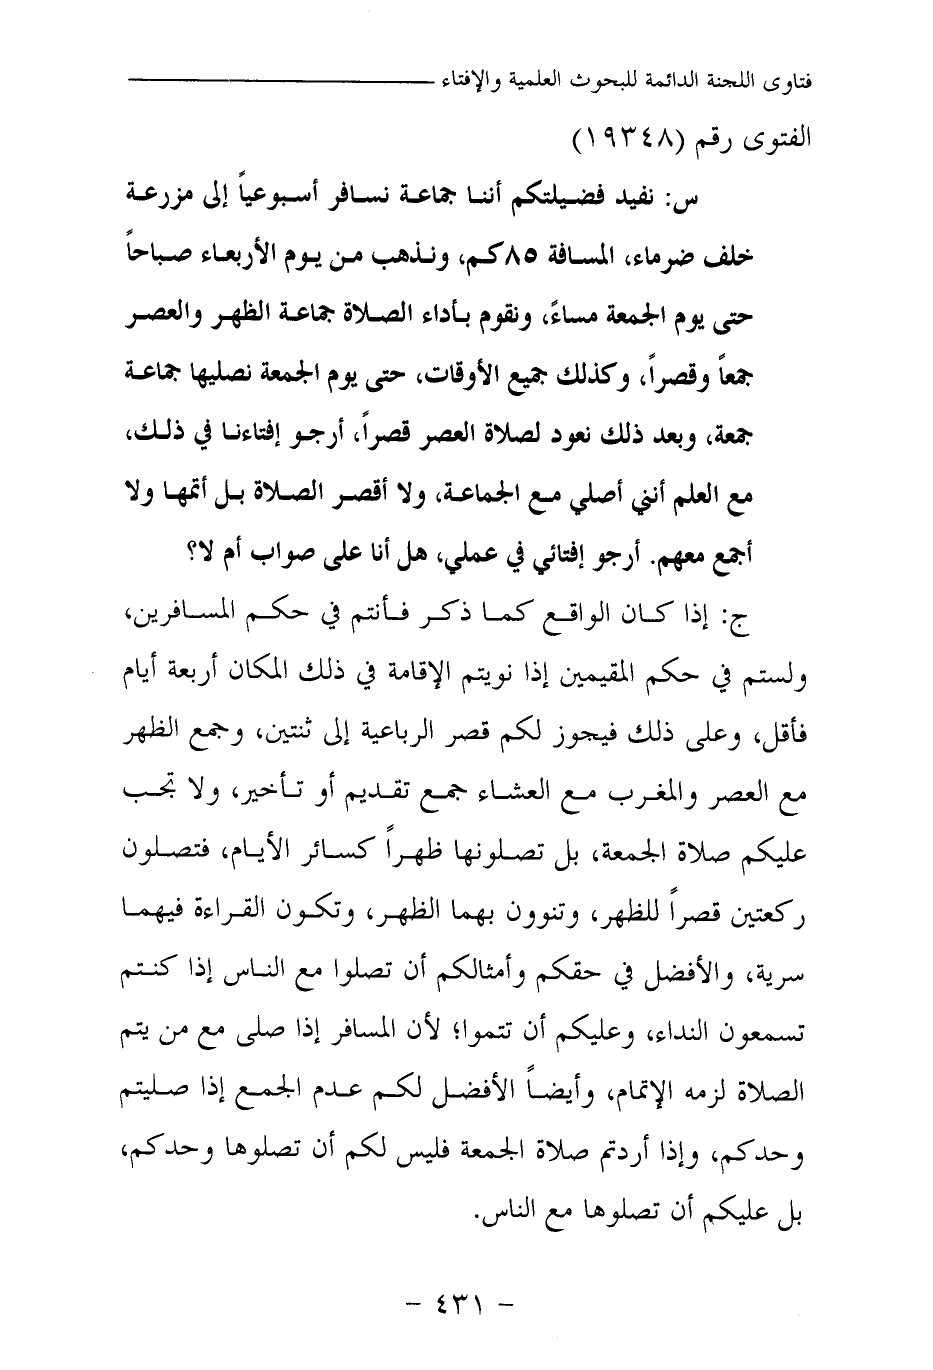 فتاوى اللجنة الدائمة للبحوث العلمية والإفتاء
الفتوى رقم (١٩٣٤٨)
س: نفيد فضيلتكم أننا جماعة نسافر أسبوعياً إلى مزرعة
خلف ضرماء، المسافة ٨٥كم، ونذهب من يوم الأربعاء صباحاً
حتى يوم الجمعة مساءً، ونقوم بأداء الصلاة جماعة الظهر والعصر
جمعاً وقصراً، وكذلك جميع الأوقات، حتى يوم الجمعة نصليها جماعة
جمعة، وبعد ذلك نعود لصلاة العصر قصراً، أرجو إفتاءنا في ذلك،
مع العلم أنني أصلي مع الجماعة، ولا أقصر الصلاة بل أتمها ولا
أجمع معهم. أرجو إفتائي في عملي، هل أنا على صواب أم لا؟
ج: إذا كان الواقع كما ذكر فأنتم في حكم المسافرين،
ولستم في حكم المقيمين إذا نويتم الإقامة في ذلك المكان أربعة أيام
فأقل، وعلى ذلك فيجوز لكم قصر الرباعية إلى ثنتين، وجمع الظهر
مع العصر والمغرب مع العشاء جمع تقديم أو تأخير، ولا تجب
عليكم صلاة الجمعة، بل تصلونها ظهراً كسائر الأيام، فتصلون
ركعتين قصراً للظهر، وتنوون بهما الظهر، وتكون القراءة فيهما
سرية، والأفضل في حقكم وأمثالكم أن تصلوا مع الناس إذا كنتم
تسمعون النداء، وعليكم أن تتموا؛ لأن المسافر إذا صلى مع من يتم
الصلاة لزمه الإتمام، وأيضاً الأفضل لكم عدم الجمع إذا صليتم
وحدكم، وإذا أردتم صلاة الجمعة فليس لكم أن تصلوها وحدكم،
بل عليكم أن تصلوها مع الناس.
- ٤٣١ -